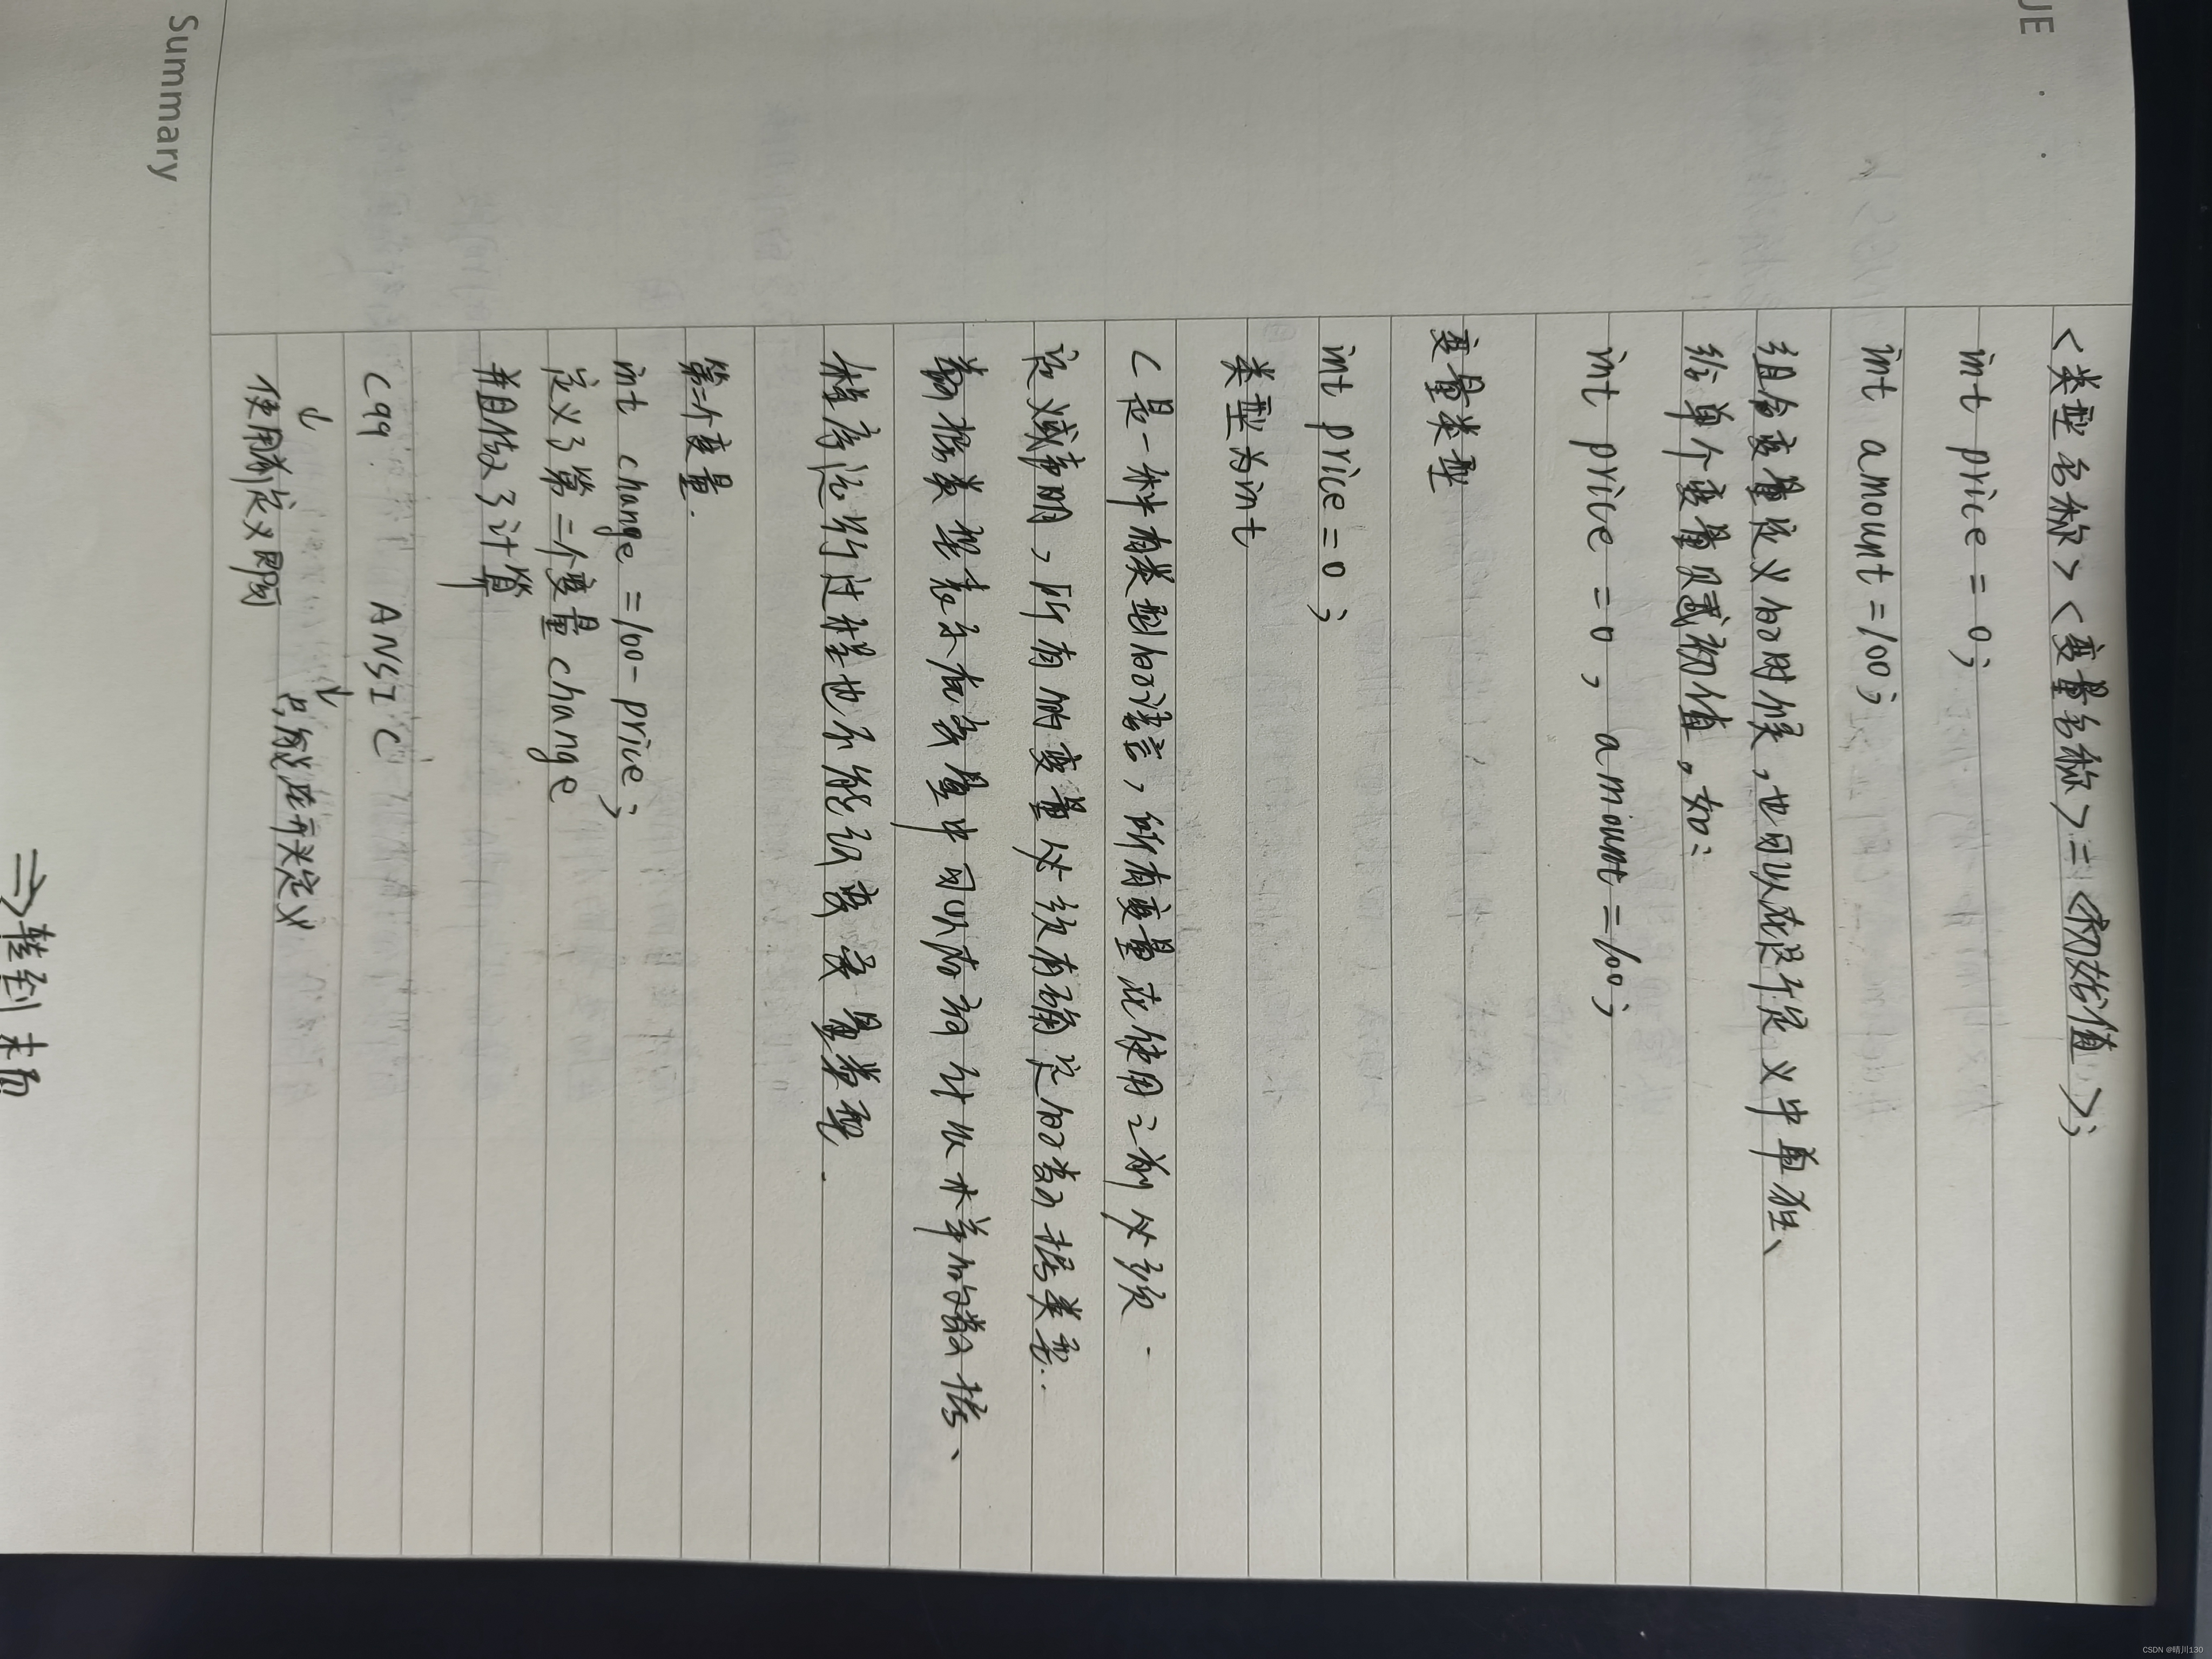 UE
<类型名称><变量名称>=<初始值>;
int price = 0;
int amount = 100;
组合变量定义的时候,也可以在这个定义中单独、
给单个变量赋初值,如:
int price = 0, amount = 100;
变量类型
int price = 0;
类型为int
C是一种有类型的语言,所有变量在使用之前必须
定义或声明,所有的变量必须有确定的数据类型.
数据类型表示在变量中可以存放什么样的数据、
程序运行过程也不能改变变量类型.
第二个变量.
int change = 100 - price;
定义了第二个变量change
并且做了计算
C99 ANSI C
↓ ↓
只能在开头定义
使用前定义即可
Summary
⇒转到末面
CSDN @晴川130